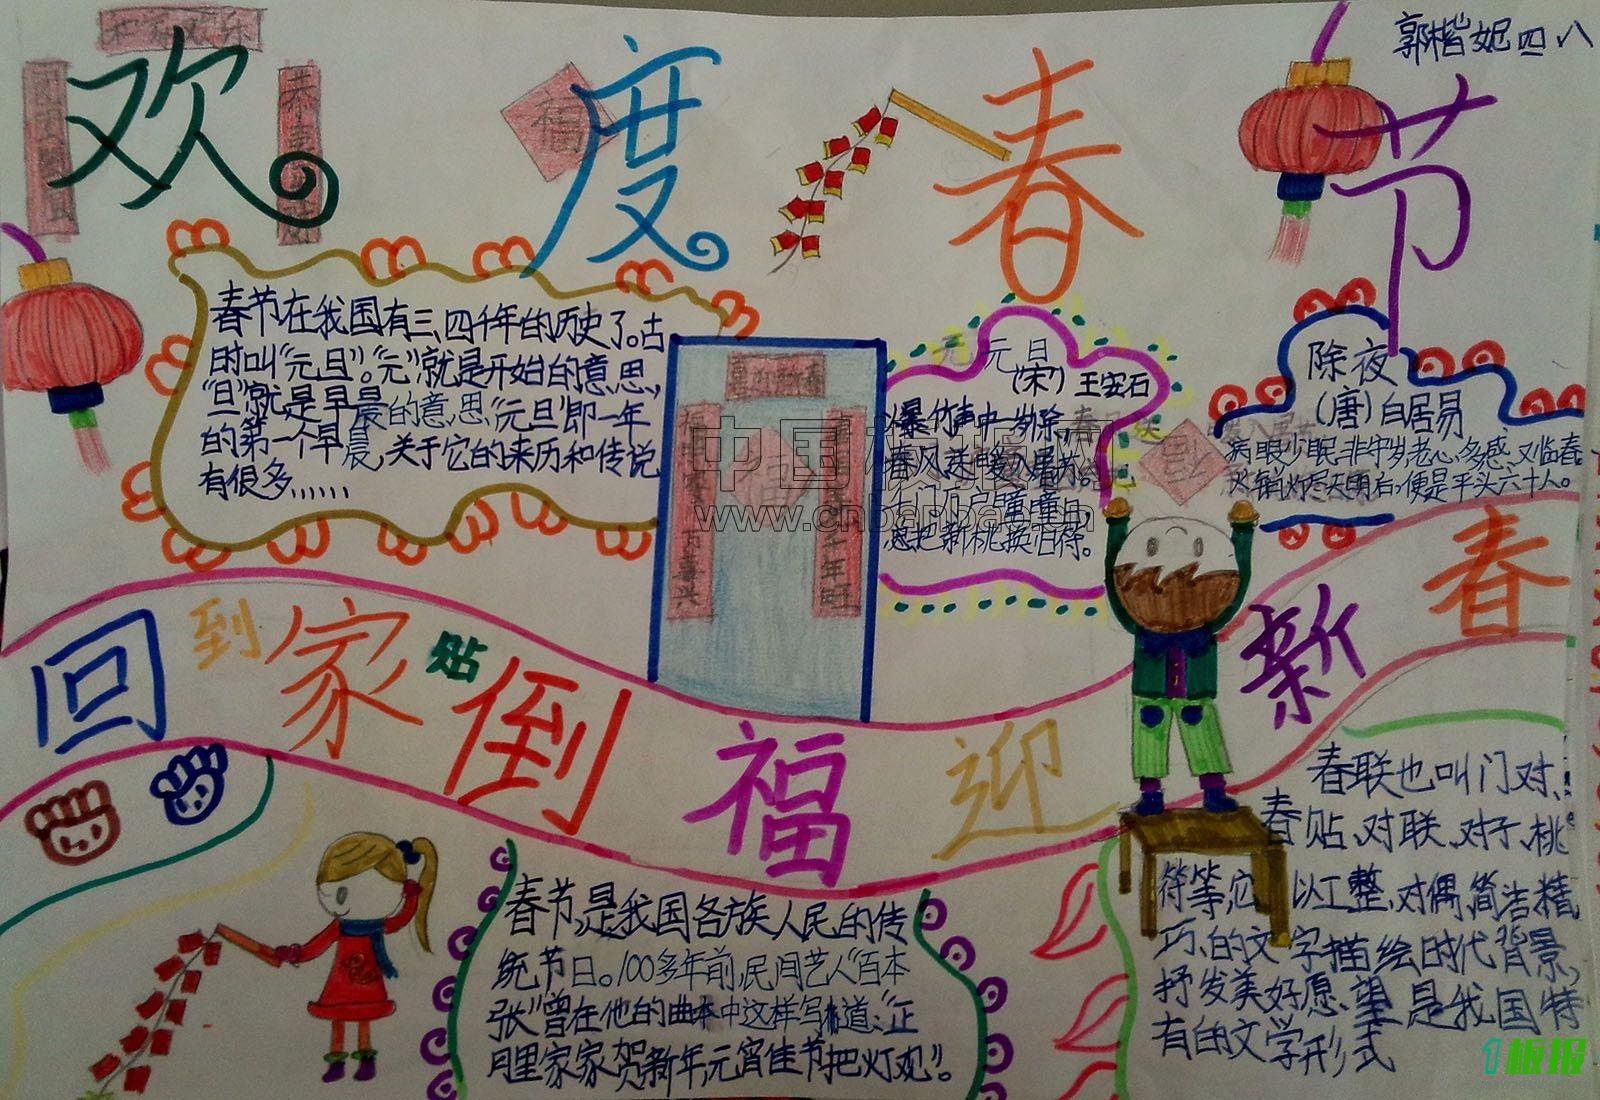 郭楷妮 四、八
欢度春节
恭
福
春节在我国有三、四千年的历史了。古
时叫“元旦”。“元”就是开始的意思，
“旦”就是早晨的意思“元旦”即一年
的第一个早晨，关于它的来历和传说
有很多……
元旦
(宋) 王安石
爆竹声中一岁除，
春风送暖入屠苏。
总把新桃换旧符。
除夜
(唐)白居易
病眼少眠非守岁，老心多感又临春。
火销灯尽天明后，便是平头六十人。
中国板报网
www.cnbanbao.cn
回到家贴倒福迎新春
春节，是我国各族人民的传
统节日。100多年前，民间艺人“百本
张”曾在他的曲本中这样写道：“正
月里家家贺新年，元宵佳节把灯观”。
春联也叫门对、
春贴、对联、对子、桃
符等，它以工整、对偶、简洁精
巧、的文字描绘时代背景，
抒发美好愿望是我国特
有的文学形式
1板报